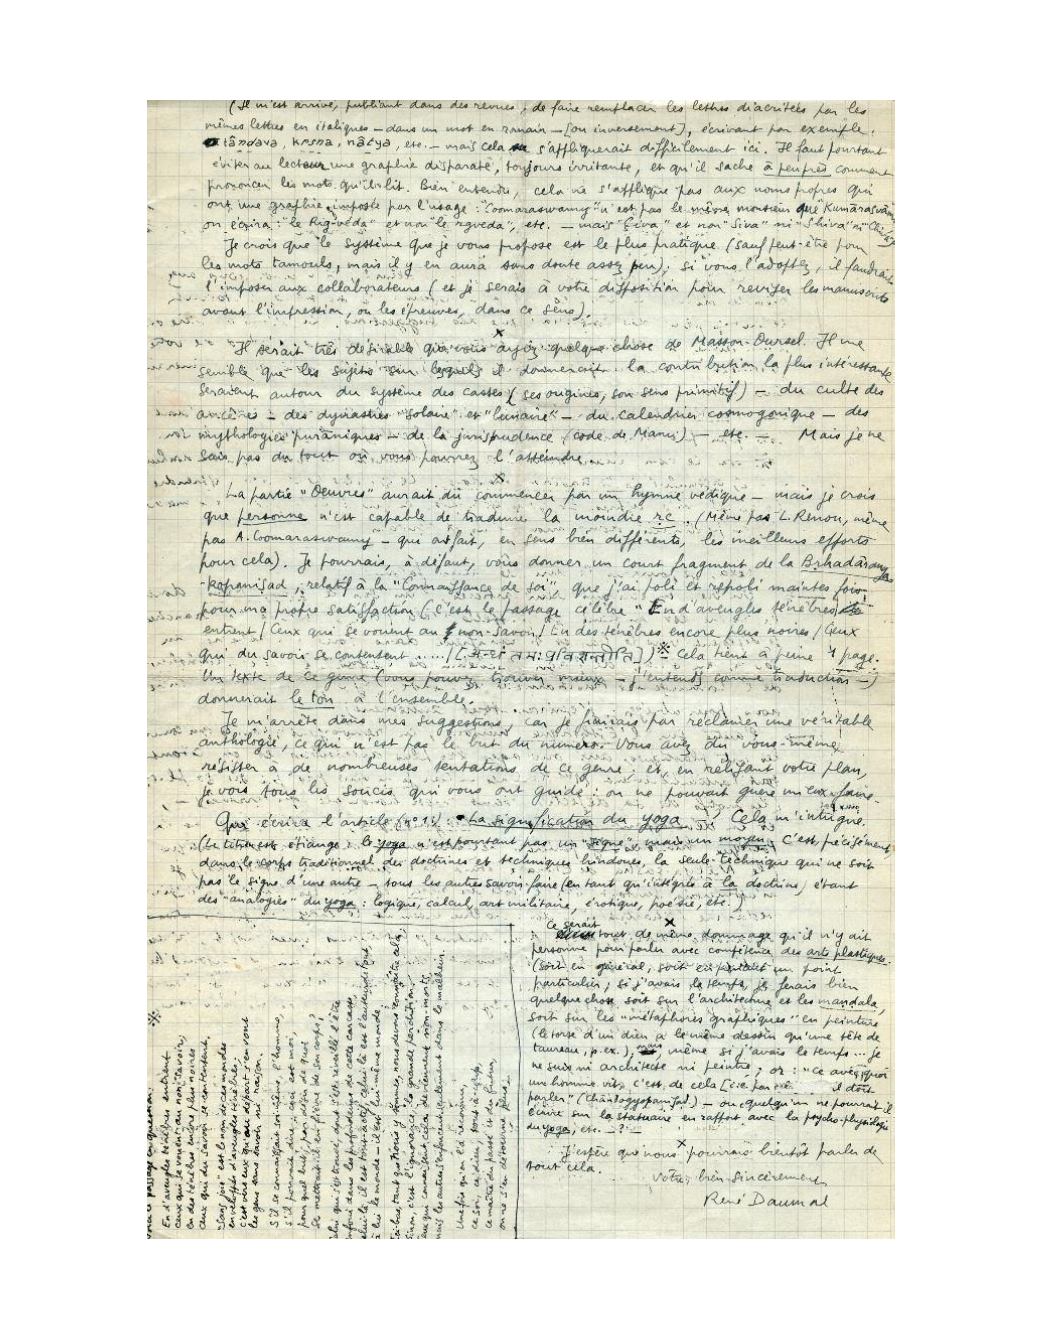 (Il m'est arrivé, publiant dans des revues, de faire remplacer les lettres diacritées par les
mêmes lettres en italiques – dans un mot en romain – [ou inversement], écrivant par exemple :
tândava, krsna, nâtya, etc. – mais cela s'appliquerait difficilement ici. Il faut pourtant
éviter au lecteur une graphie disparate, toujours irritante, et qu'il sache à peu près comment
prononcer les mots qu'il lit. Bien entendu, cela ne s'applique pas aux noms propres qui
ont une graphie imposée par l'usage : "Coomaraswamy" n'est pas le même monsieur que Kumârasvâmi
on écrira : "le Rig-vêda" et non "le rgveda", etc. – mais "Çiva" et non "Siva" ni "Shiva" ni
Je crois que le système que je vous propose est le plus pratique. (sauf peut-être pour
les mots tamouls, mais il y en aura sans doute assez peu). Si vous l'adoptez, il faudrait
l'imposer aux collaborateurs (et je serais à votre disposition pour reviser les manuscrits
avant l'impression, ou les épreuves, dans ce sens).
x
Il serait très désirable que vous ayiez quelque chose de Masson-Oursel. Il me
semble que les sujets sur lesquels il donnerait la contribution la plus intéressante
seraient autour du système des castes (ses origines, son sens primitif) – du culte des
ancêtres – des dynasties "solaire" et "lunaire" – du calendrier cosmogonique – des
mythologies purâniques – de la jurisprudence (code de Manu) – etc. – Mais je ne
sais pas du tout où vous pourrez l'atteindre.
x
La partie "Oeuvres" aurait dû commencer par un hymne védique – mais je crois
que personne n'est capable de traduire la moindre rc. (Même pas L. Renou, même
pas A. Coomaraswamy – qui ont fait, en sens bien différents, les meilleurs efforts
pour cela). Je pourrais, à défaut, vous donner un court fragment de la Brhadâranya-
kopanisad, relatif à la "Connaissance de soi", que j'ai poli et repoli maintes fois
pour ma propre satisfaction (c'est le passage célèbre "En d'aveugles ténèbres
entrent / Ceux qui se vouent au non-savoir / En des ténèbres encore plus noires / Ceux
qui du savoir se contentent ..... / [अन्धं तमः प्रविशन्तीति]) ※ Cela tient à peine 1 page.
Un texte de ce genre (vous pouvez trouver mieux – j'entends comme traduction –)
donnerait le ton à l'ensemble.
Je m'arrête dans mes suggestions, car je finirais par réclamer une véritable
anthologie, ce qui n'est pas le but du numéro. Vous avez dû vous-même
résister à de nombreuses tentations de ce genre : et, en relisant votre plan,
je vois tous les soucis qui vous ont guidé : on ne pouvait guère mieux faire.
Qui écrira l'article (n°1) : "La signification du yoga" ? Cela m'intrigue.
(Le titre est étrange : le yoga n'est pourtant pas un "signe" mais un moyen. C'est, précisément,
dans le corps traditionnel des doctrines et techniques hindoues, la seule technique qui ne soit
pas le signe d'une autre – tous les autres savoir-faire (en tant qu'intégrés à la doctrine) étant
des "analogies" du yoga : logique, calcul, art militaire, érotique, poésie, etc.)
x
Ce serait
tout de même dommage qu'il n'y ait
personne pour parler avec compétence des arts plastiques.
(soit en général, soit en prenant un point
particulier ; si j'avais le temps, je ferais bien
quelque chose soit sur l'architecture et les mandala,
soit sur les "métaphores graphiques" en peinture
(le torse d'un dieu a le même dessin qu'une tête de
taureau, p. ex.), mais, même si j'avais le temps... je
ne suis ni architecte ni peintre ; or : "ce avec quoi
un homme vit, c'est de cela il doit
parler" (Chândogyopanisad.) – ou quelqu'un ne pourrait-il
écrire sur la statuaire en rapport avec la psycho-physiologie
du yoga, etc. – ? –
x
J'espère que nous pourrons bientôt parler de
tout cela.
votre, bien sincèrement
René Daumal
※
Voici le passage en question :
En d'aveugles ténèbres entrent
ceux qui se vouent au non-savoir,
en des ténèbres encore plus noires
ceux qui du savoir se contentent.
"Sans joie" est le nom de ces mondes
enveloppés d'aveugles ténèbres ;
c'est vers eux qu'au départ s'en vont
les gens sans savoir ni raison.
S'il se connaissait soi-même, l'homme,
s'il pouvait dire : ceci est moi,
pour quel but, par désir de quoi
se mettrait-il en fièvre de son corps ?
Celui qui s'est trouvé, dont s'est réveillé l'être
enfoui dans les profondeurs de cette carcasse,
celui-là il est tout-actif, celui-là est l'auteur du Tout,
à lui le monde – il est lui-même monde.
Ici-bas, tant que nous y sommes, nous devons connaître cela,
sinon, c'est l'ignorance, la grande perdition.
Ceux qui connaissent cela, deviennent non-morts,
mais les autres s'enfoncent seulement dans le malheur.
Une fois qu'on l'a reconnu,
ce soi, ce dieu, tout-à-coup,
ce maître du passé et du futur,
on ne s'en détourne plus.